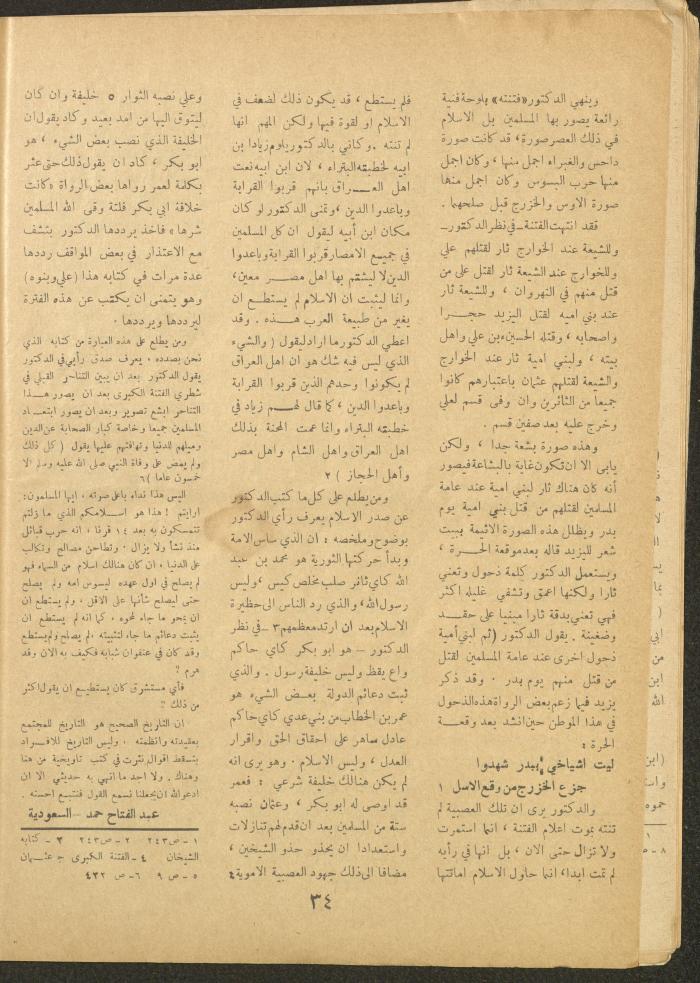 وينهي الدكتور «فتنته» بلوحة فنية
رائعة يصور بها المسلمين بل الاسلام
في ذلك العصر صورة ، قد كانت صورة
داحس والغبراء اجمل منها ، وكان اجمل
منها حرب البسوس وكان اجمل منها
صورة الاوس والخزرج قبل صلحهما .
فقد انتهت الفتنة ـ في نظر الدكتور ـ
وللشيعة عند الخوارج ثار لقتلهم علي
وللخوارج عند الشيعة ثار لقتل على من
قتل منهم في النهروان ، وللشيعة ثار
عند بني اميه لقتل اليزيد حجرا
واصحابه ، وقتله الحسين بن علي واهل
بيته ، ولبني امية ثار عند الخوارج
والشيعة لقتلهم عثمان باعتبارهم كانوا
جميعا من الثائرين وان وفى قسم لعلي
وخرج عليه بعد صفين قسم .
وهذه صورة بشعة جدا ، ولكن
يابى الا ان تكون غاية بالبشاعة فيصور
أنه كان هناك ثار لبني امية عند عامة
المسلمين لقتلهم من قتل بني امية يوم
بدر ويظلل هذه الصورة الاثيمة ببيت
شعر لليزيد قاله بعد موقعة الحرة ،
ويستعمل الدكتور كلمة ذحول وتعني
ثارا ولكنها اعمق وتشفي غليله اكثر
فهي تعني بدقة ثارا مبنيا على حقد
وضغينة . يقول الدكتور (ثم لبني أمية
ذحول اخرى عند عامة المسلمين لقتل
من قتل منهم يوم بدر . وقد ذكر
يزيد فيما زعم بعض الرواة هذه الذحول
في هذا الموطن حين انشد بعد وقعة
الحرة :
ليت اشياخي ببدر شهدوا
جزع الخزرج من وقع الاسل ١
والدكتور يرى ان تلك العصبية لم
تنته بموت اعلام الفتنة ، انما استمرت
ولا تزال حتى الان ، بل انها في رأيه
لم تمت ابدا ، انما حاول الاسلام اماتتها
فلم يستطع ، قد يكون ذلك لضعف في
الاسلام او لقوة فيها ولكن المهم انها
لم تنته . وكاني بالدكتور يلوم زيادا بن
ابيه لخطبته البتراء ، لان ابن ابيه نعت
اهل العـراق بانهم قربوا القرابة
وباعدوا الدين ، وتمنى الدكتور لو كان
مكان ابن أبيه ليقول ان كل المسلمين
في جميع الامصار قربوا القرابة وباعدوا
الدين لا ليشتم بها اهل مصـر معين ،
وانما ليثبت ان الاسلام لم يستطع ان
يغير من طبيعة العرب هـذه . وقد
اعطي الدكتور ما اراد ليقول ( والشيء
الذي ليس فيه شك هو ان اهل العراق
لم يكونوا وحدهم الذين قربوا القرابة
وباعدوا الدين ، كما قال لهـم زياد في
خطبته البتراء وانما عمت المحنة بذلك
اهل العراق واهل الشام واهل مصر
وأهل الحجاز ) ٢
ومن يطلع على كل ما كتب الدكتور
عن صدر الاسلام يعرف رأي الدكتور
بوضوح وملخصه : ان الذي ساس الامة
وبدأ حركتها الثورية هو محمد بن عبد
الله كاي ثائر صلب مخلص كيس ، وليس
رسول الله ، والذي رد الناس الى حظيرة
الاسلام بعد ان ارتد معظمهم ٣ ـ في نظر
الدكتور ـ هو ابو بكر كاي حاكم
واع يقظ وليس خليفة رسول . والذي
ثبت دعائم الدولة بعض الشيء هو
عمر بن الخطاب من بني عدي كاي حاكم
عادل ساهر على احقاق الحق واقرار
العدل ، وليس الاسلام . وهو يرى انه
لم يكن هنالك خليفة شرعي : فعمر
قد اوصى له ابو بكر ، وعثمان نصبه
ستة من المسلمين بعد ان قدم لهم تنازلات
واستعدادا ان يحذو حذو الشيخين ،
مضافا الى ذلك جهود العصبية الاموية ٤
وعلي نصبه الثوار ٥ خليفة وان كان
ليتوق اليها من امد بعيد وكاد يقول ان
الخليفة الذي نصب بعض الشيء ، هو
ابو بكر ، كاد ان يقول ذلك حتى عثر
بكلمة لعمر رواها بعض الرواة «كانت
خلافة ابي بكر فلتة وقى الله المسلمين
شرها » فاخذ يرددها الدكتور بتشف
مع الاعتذار في بعض المواقف رددها
عدة مرات في كتابه هذا (علي وبنوه)
وهو يتمنى ان يكتب عن هذه الفترة
ليرددها ويرددها .
ومن يطلع على هذه العبارة من كتابه الذي
نحن بصدده . يعرف صدق رأيي في الدكتور
يقول الدكتور بعد ان يبين التناحر القبلي في
شطري الفتنة الكبرى بعد ان يصور هـذا
التناحر ابشع تصوير وبعد ان يصور ابتعـاد
المسلمين جميعا وخاصة كبار الصحابة عن الدين
وميلهم للدنيا وتهافتهم عليها يقول ( كل ذلك
ولم يمض على وفاة النبي صلى الله عليه وسلم الا
خمسون عاما ) ٦
اليس هذا نداء باعلى صوته . ايها المسلمون :
ارايتم ! هذا هو اسلامكم الذي ما زلتم
تتمسكون به بعد ١٤ قرنا ، انه حرب قبائل
منذ نشأ ولا يزال . وتطاحن مصالح وتكالب
على الدنيا ، ان كان هنالك اسلام من السماء فهو
لم يصلح في اول عهده ليسوس امه ولم يصلح
حتى ليصلح شأنها على الاقل ، ولم يستطع ان
ان يمحو ما جاء لمحوه ، كما انه لم يستطع ان
يثبت دعائم ما جاء لتثبيته . لم يصلح ولم يستطع
وقد كان في عنفوان شبابه فكيف به الان وقد
هرم ؟
فأي مستشرق كان يستطيع ان يقول اكثر
من ذلك ؟
ان التاريخ الصحيح هو التاريخ للمجتمع
بعقيدته وانظمته . وليس التاريخ للافـراد
بتسقط اقوال نثرت في كتب تاريخية من هنا
وهناك . ولا احد ما انهي به حديثي الا ان
ادعو الله ان يجعلنا نسمع القول فنتبع احسنه .
عبد الفتاح حمد ـ السعودية
١ ـ ص ٢٤٣ ٢ ـ ص ٢٤٣ ٣ ـ كتابه
الشيخان ٤ ـ الفتنة الكبرى ج عثـمان
٥ ـ ص ٩ ٦ ـ ص ٤٣٢
٣٤